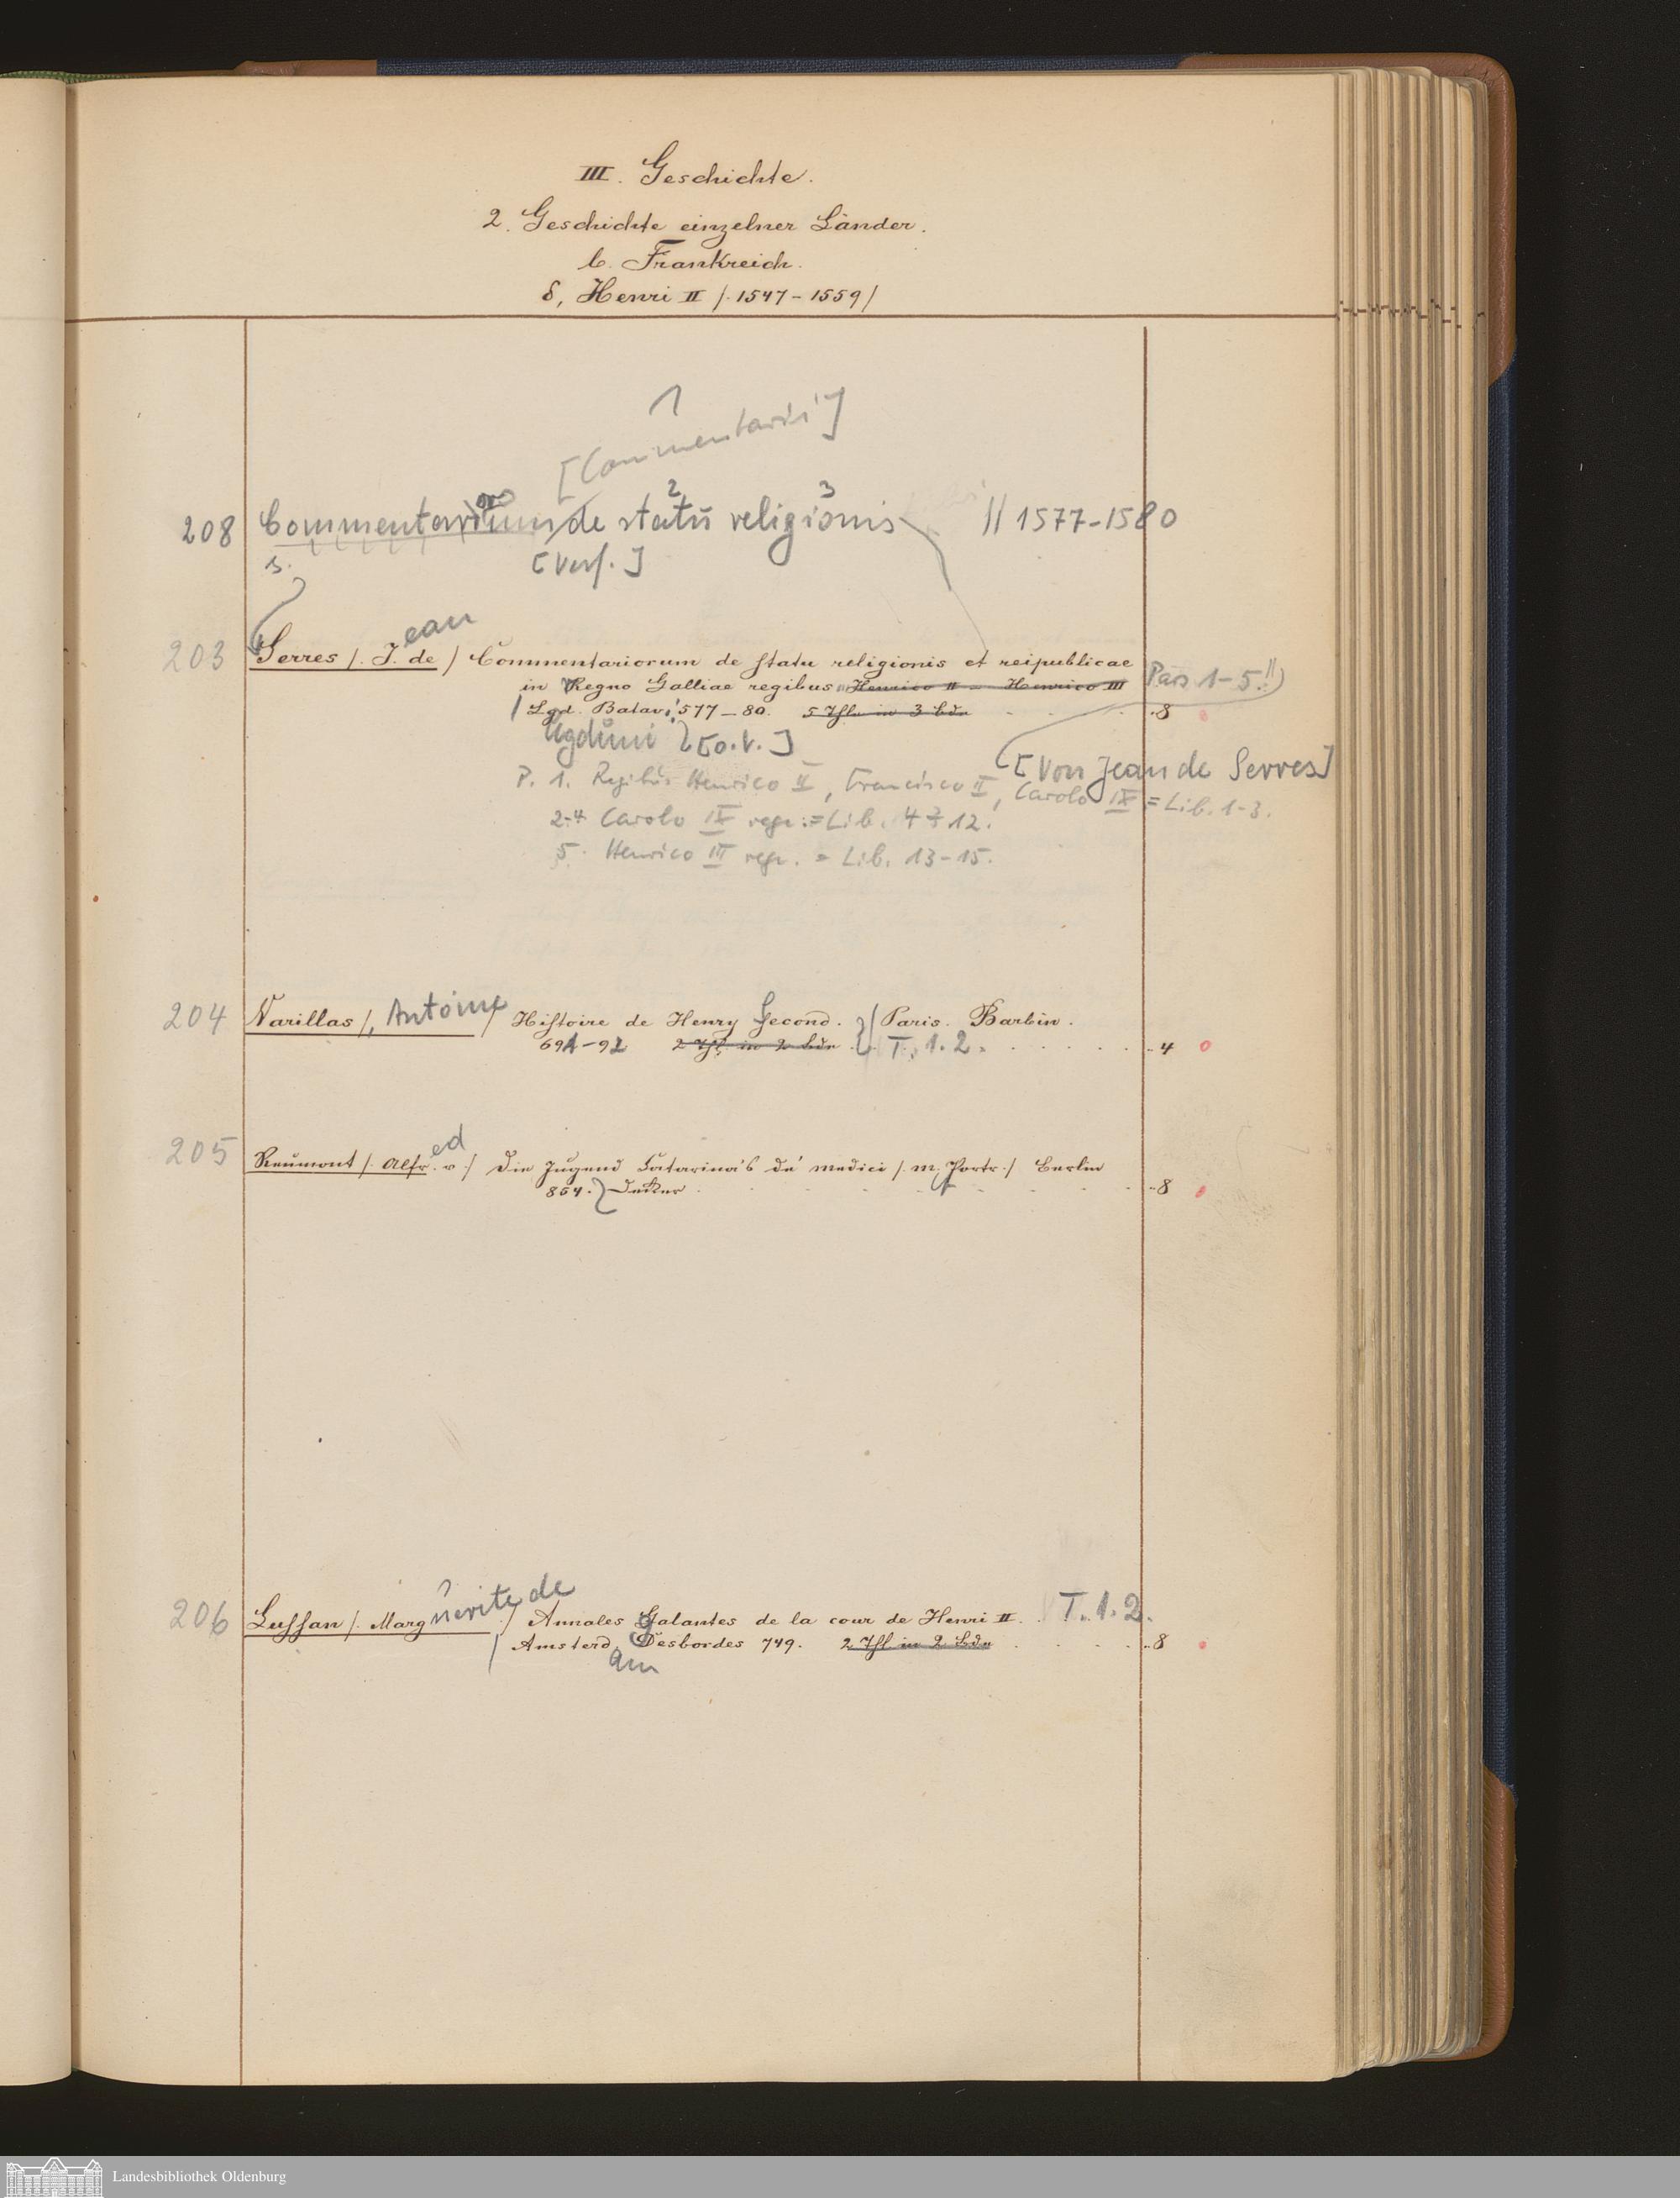 III. Geschichte.
2. Geschichte einzelner Länder.
b. Frankreich.
δ, Henri II /. 1547-1559/
1
[Commentarii]
2 3
208 Commentariorum de statu religionis || 1577-1580
s. [Verf.]
203 Serres /. J.ean de / Commentariorum de statu religionis et reipublicae
in Regno Galliae regibus Henrico II - Henrico III Pars 1-5.||
/ Lgd. Batav. 1577-80. 5 Thle in 3 Bdn 8
ugduni [o.V.]
[Von Jean de Serres]
P. 1. Regibus Henrico II, Francisco II, Carolo IX = Lib. 1-3.
2-4 Carolo IX rege = Lib. 4-12.
5. Henrico III rege. = Lib. 13-15.
204 Varillas /, Antoine / Histoire de Henry Second. / Paris. Barbin.
691-92 2 Thl in 2 Bdn T. 1. 2. 4
205 Reumont /. Alfred v / Die Jugend Catarina's de' Medici /. m. Portr./ Berlin
854. Decker 8
206 Lussan /. Marguerite de / Annales Galantes de la cour de Henri II. T. 1. 2.
/ Amsterd. Desbordes 749. 2 Thl in 2 Bdn 8
am
Landesbibliothek Oldenburg